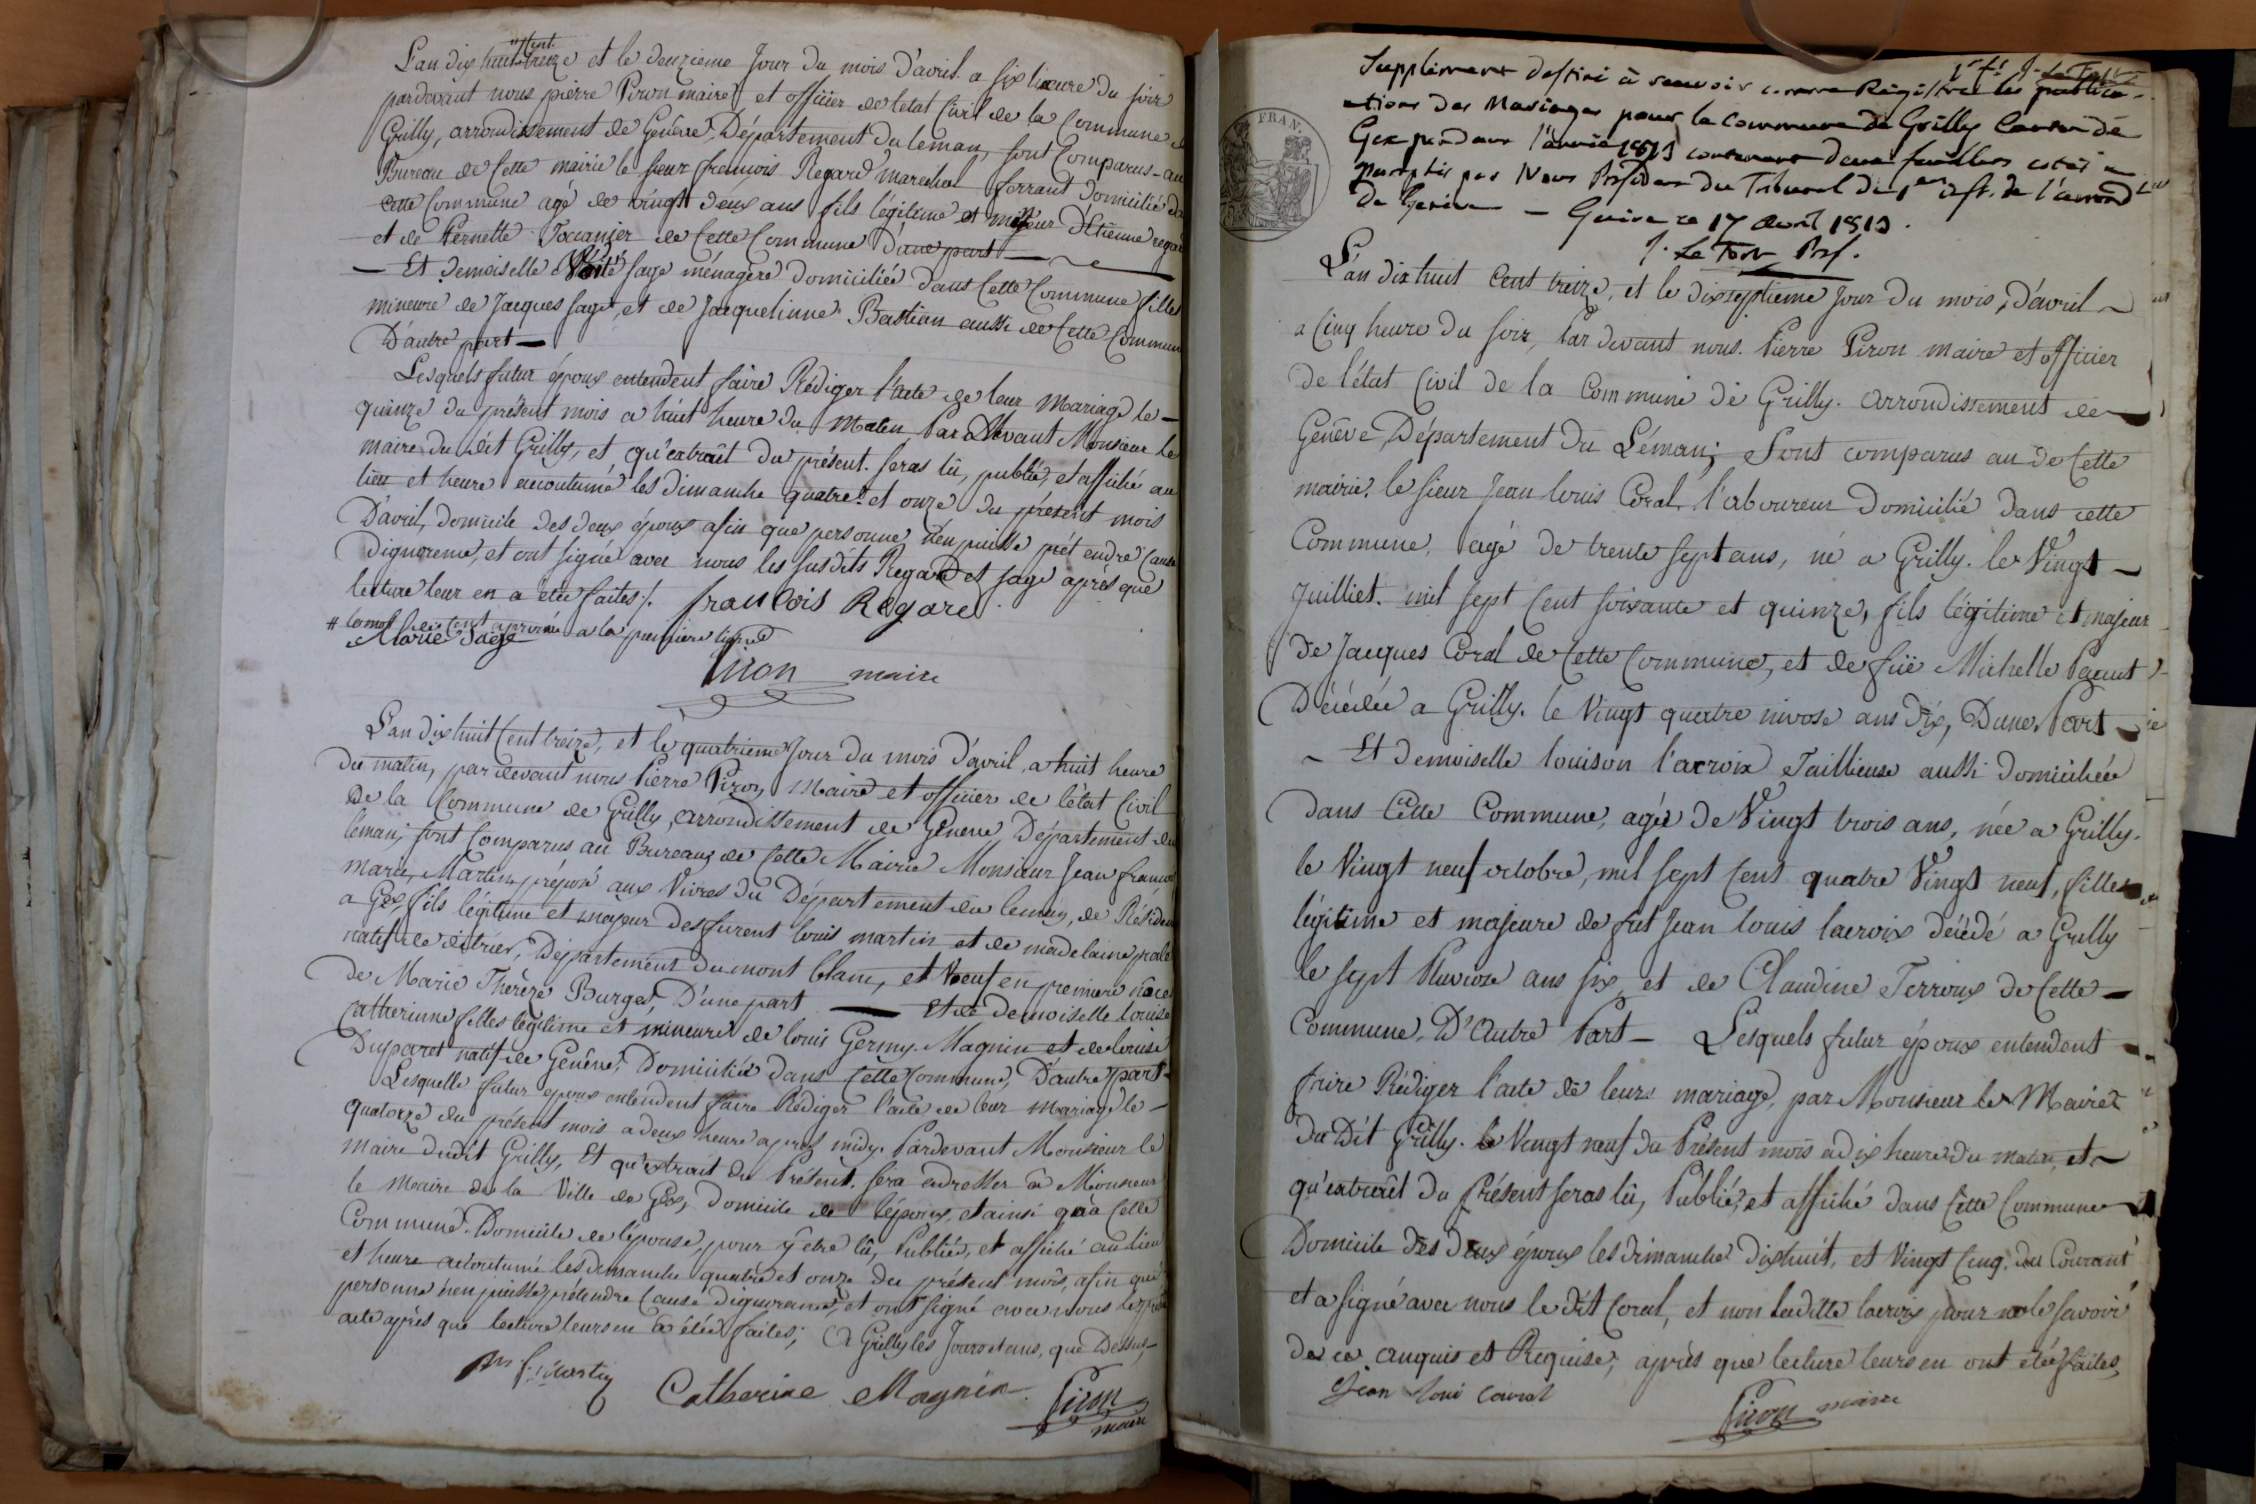 L'an dix huit cent treize et le deuzieme Jour du mois d'avril a six heure du soir
pardevant nous pierre Piron maire et officier de letat Civil de la Commune
Grilly, arrondissement de Genêve, Département du leman, sont Comparus au
Bureau de Cette mairie le sieur francois Regard marechal ferrant domicilié
cette Commune agé de vingt deux ans fils légitime et Etienne regar
et de Pernette de Cette Commune D'une part —
— Et Demoiselle sage ménagere domiciliée dans Cette Commune fille
mineure de Jacques sage, et de Jacquelinne Bastian aussi de Cette Commun
D'autre part —
Lesquels futur époux entendent faire Rédiger l'acte de leur mariage le —
quinze du présent mois a huit heure du Matin Par devant Monsieur le
maire du dit Grilly, et qu'extrait du présent. seras lû, publié, et affiché au
lieu et heure accoutumé les dimanche quatre et onze du présent mois
D'avril, domicile des deux époux afin que personne n'en puisse prétendre Cause
Dignorence, et ont signé avec nous les susdits Regard et sage après que
lecture leur en a étée faites /. francois Regard
# le mot cent a la premiere ligne
Marie Sage
Piron maire
L'an dix huit Cent treize, et le quatrieme Jour du mois d'avril a huit heure
du matin, pardevant nous Pierre Piron Maire et officier de l'état Civil
De la Commune de Grilly, arrondissement de Geneve Département du
leman; sont Comparus au Bureau de Cette Mairie Monsieur Jean francois
marie Martin, préposé aux Vivres du Département du leman, de Résiden
a Gex, fils légitime et majeur des furent louis martin et de madelaine
natif de Département du mont blanc, et Veuf en premiere noce
de Marie Thérèze Burges, D'une part — Et de Demoiselle Louise
Catherinne filles légitime et mineure de louis Germy Magnin et de louise
Duparet natif de Genêve, Domiciliée dans Cette Commune, D'autre part —
Lesquelle futur époux entendent faire Rédiger l'acte de leur mariage le —
quatorze du présent mois a deux heure après midy. Pardevant Monsieur le
maire dudit Grilly, Et qu'extrait du Présent. sera adresser à Monsieur
le Maire de la Ville de Gex, Domicile de l'époux, et ainsi qu'à Celle
Commune Domicile de l'épouse, pour y être lû, Publiée, et affiché au lieu
et heure accoutumé les dimanche quatre et onze du présent mois, afin que
personne n'en puisse prétendre Cause Dignorence, et ont signé avec nous
acte après que lecture leurs en a étée faites; à Grilly les Jour et ans, que Dessus,
Martin Catherine Magnin Piron
maire
Supplément destiné à recevoir comme Registre les publica-
-tions des Mariages pour la commune de Grilly Canton de
Gex pendant l'année 1813 contenant deux feuilles cotés &
paraphés par Nous Président du Tribunal de 1ere inst. de l'arrondt
De Genève — Genève ce 17 Avril 1813.
J. Le Fort Prs.
FRAN.
L'an dix huit Cent treize, et le dixseptieme Jour du mois, d'avril
a Cinq heure du soir, Par devant nous. Pierre Piron maire et officier
De l'état Civil de la Commune de Grilly. arrondissement de
Genêve, Département Du Léman; Sont comparus au de Cette
mairie. le sieur Jean louis Coral, l'aboureur Domicilié dans cette
Commune, agé de trente sept ans, né a Grilly. le Vingt —
Juilliet. mil sept Cent soixante et quinze, fils légitime et majeur
De Jacques Coral de Cette Commune, et de füe Michelle
Décédée a Grilly. le Vingt quatre nivose ans Dix, D'une Part —
— Et Demoiselle louison l'acroix Taillieuse aussi Domiciliée
Dans Cette Commune, agée De Vingt trois ans, née a Grilly.
le Vingt neuf octobre, mil sept Cent quatre Vingt neuf, filles
légitime et majeure de fut Jean louis lacroix décédé a Grilly
le sept Pluviose ans six, et de Claudine Terroux De Cette —
Commune, D'Autre Part — Lesquels futur époux entendent
faire Rédiger l'acte de leurs mariage, par Monsieur le Maire
Du Dit Grilly. le Vingt neuf du Présent mois a dix heure du matin, et
qu'extrait du Présent seras lû, Publié, et affiché dans Cette Commune
Domicile des Deux époux les dimanche dixhuit, et Vingt Cinq. du Courant
et a signé avec nous le dit Coral, et non laditte lacroix pour ne le savoir
de ce anquis et Requise, après que lecture leurs en ont étée faites,
Jean loui Coural
Piron maire